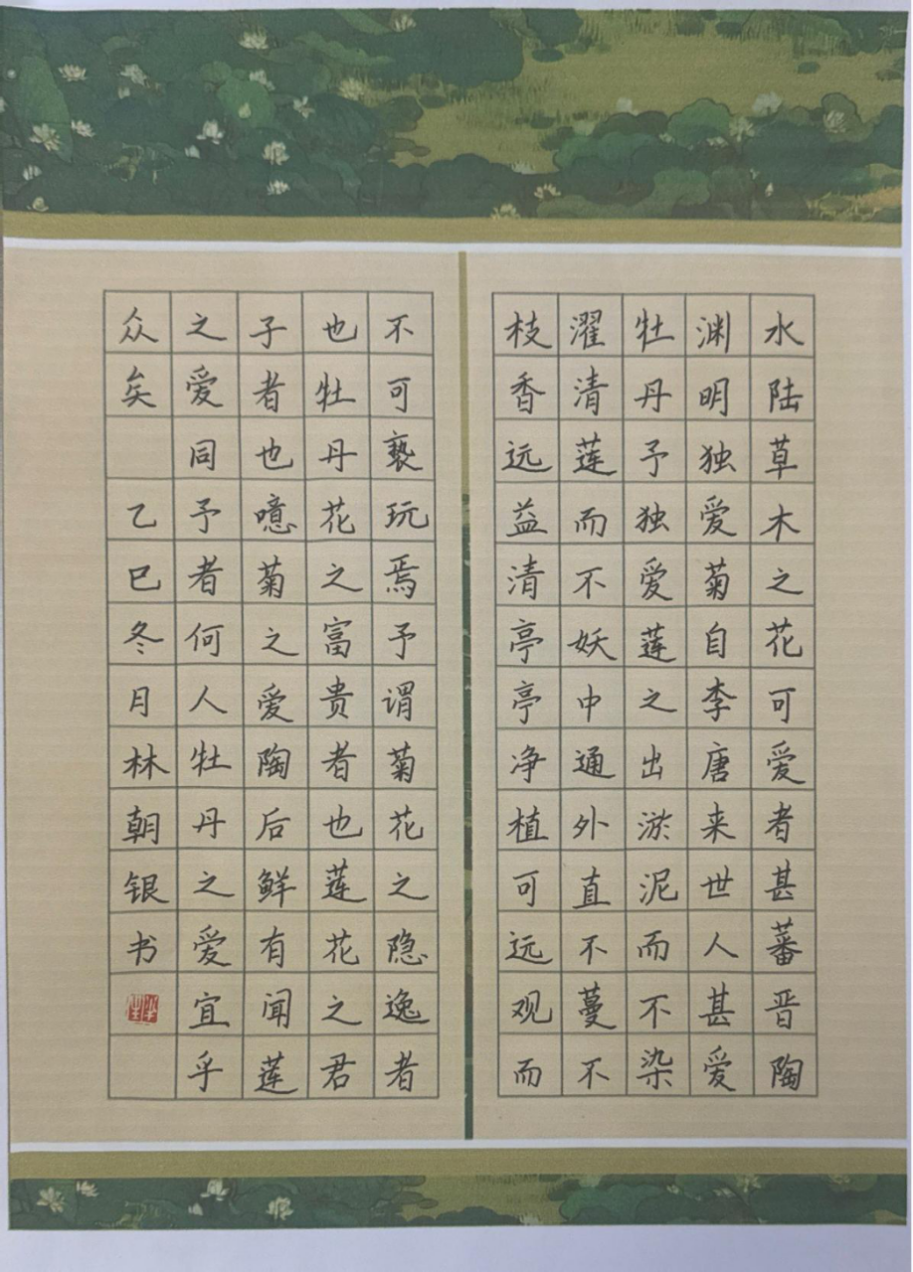 水陆草木之花可爱者甚蕃晋陶
渊明独爱菊自李唐来世人甚爱
牡丹予独爱莲之出淤泥而不染
濯清莲而不妖中通外直不蔓不
枝香远益清亭亭净植可远观而
不可亵玩焉予谓菊花之隐逸者
也牡丹花之富贵者也莲花之君
子者也噫菊之爱陶后鲜有闻莲
之爱同予者何人牡丹之爱宜乎
众矣 乙巳冬月林朝银书